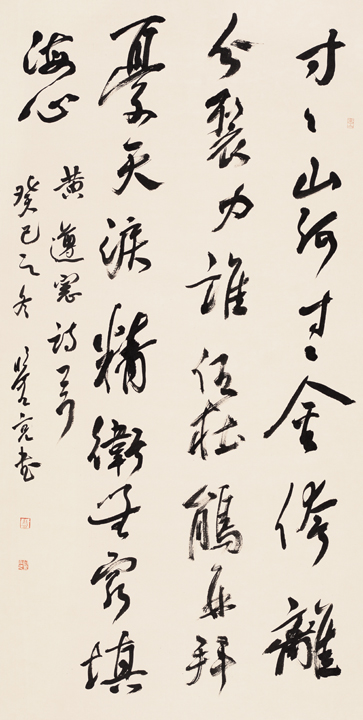 寸〻山河寸〻金侉離
分裂力誰任杜鵑再拜
憂天淚精衛無窮填
海心
黃遵憲詩
癸巳之冬 亮書